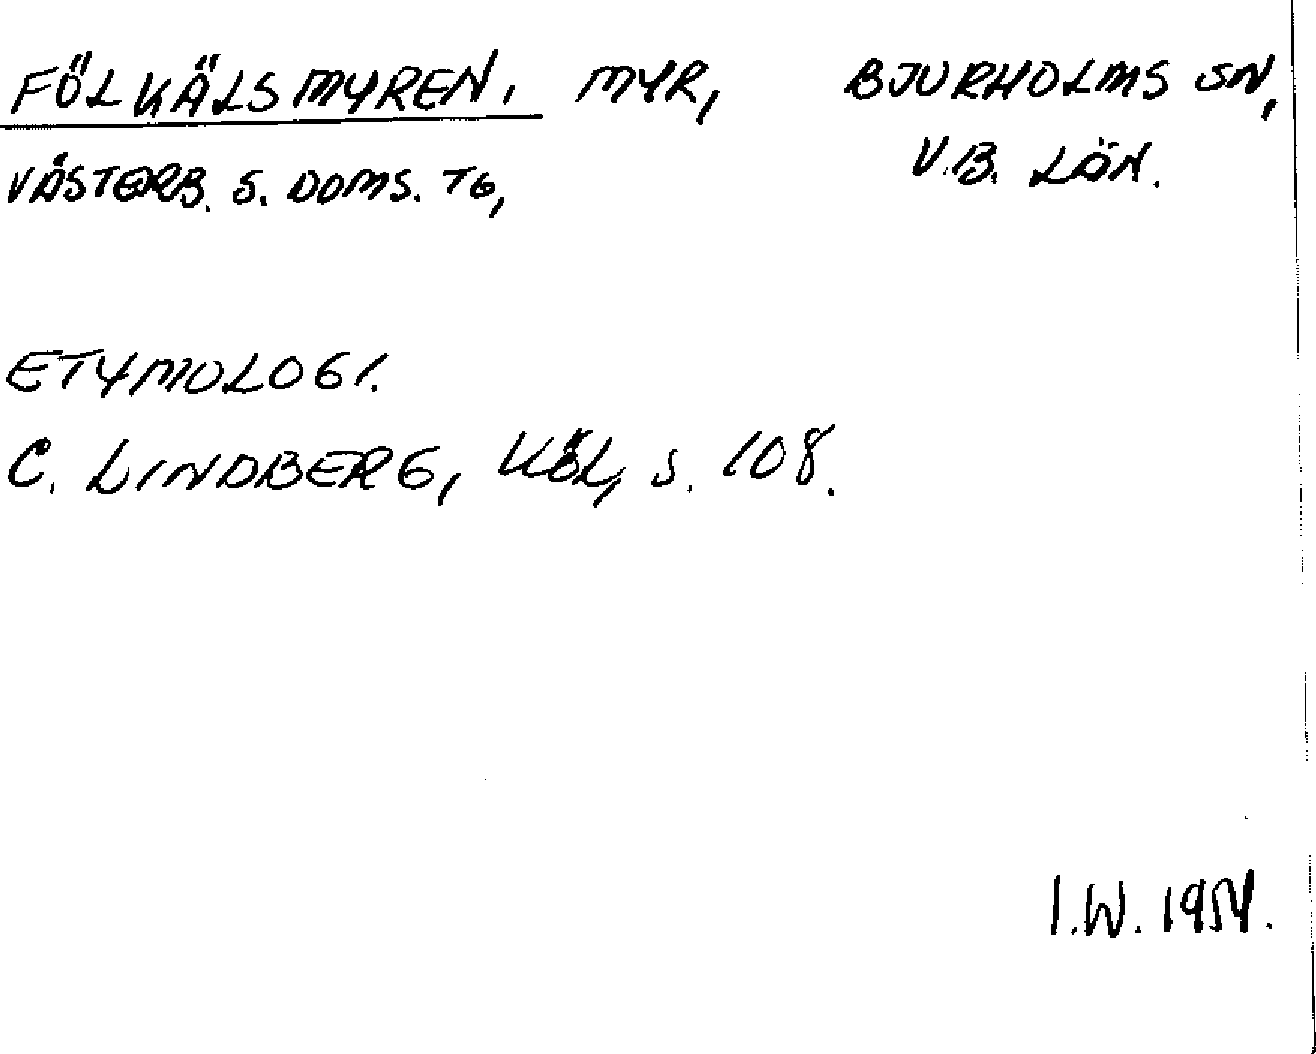 FÖLKÄLSMYREN, MYR, BJURHOLMS SN,
VÄSTERB. S. DOMS. TG, V.B. LÄN.
ETYMOLOGI.
C. LINDBERG, KÖL, s. 108.
I.W. 1954.